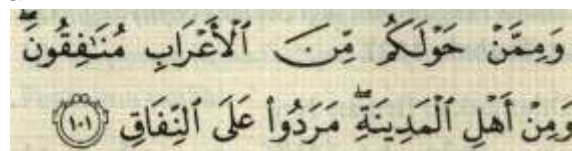 وَمِمَّنْ حَوْلَكُم مِّنَ ٱلْأَعْرَابِ مُنَٰفِقُونَۖ
وَمِنْ أَهْلِ ٱلْمَدِينَةِۖ مَرَدُوا۟ عَلَى ٱلنِّفَاقِ ١٠١